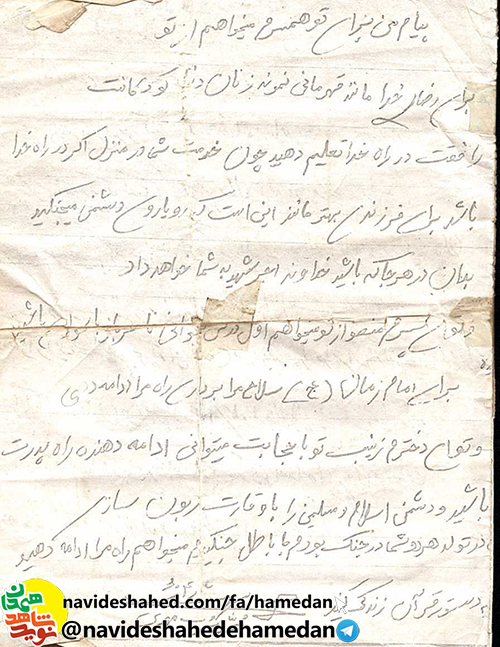 پیام من برای تو همسرم میخواهم از تو
برای رضای خدا مانند قهرمانی نمونه زنان دنیا کودکانت
را فقط در راه خدا تعلیم دهید چون خدمت شما در منزل اگر در راه خدا
باشد برای فرزندان بهتر مانند این است که رویاروی دشمن میجنگید
بدان در هر جا که باشید خداوند اجر شهید به شما خواهد داد
و توای پسرم منصور از تو میخواهم اول درس بخوانی تا سرباز
برای امام زمانت (عج) سلاح مرا برداری راه مرا ادامه دهی
و توای دخترم زینب تو با حجابت میتوانی ادامه دهنده راه پدرت
باشید و دشمن اسلام و مسلمین را با وقارت زبون سازی
در تولد هر دو شما در جنگ بودم با باطل جنگیدم میخواهم راه مرا ادامه دهید
به دستور قرآن زندگی کنید
navideshahed.com/fa/hamedan
@navideshahedehamedan
نوید شاهد همدان